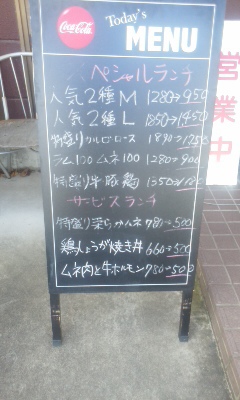 Coca-Cola
Today's
MENU
スペシャルランチ
人気2種M 1280→950
人気2種L 1850→1450
特盛りカルビロース 1890→
ラム100ムネ100 1280→900
特盛り牛豚鶏 1350→
サービスランチ
特盛り柔らかムネ 780→500
鶏しょうが焼き丼 660→500
ムネ肉と牛ホルモン 780→500
営業中